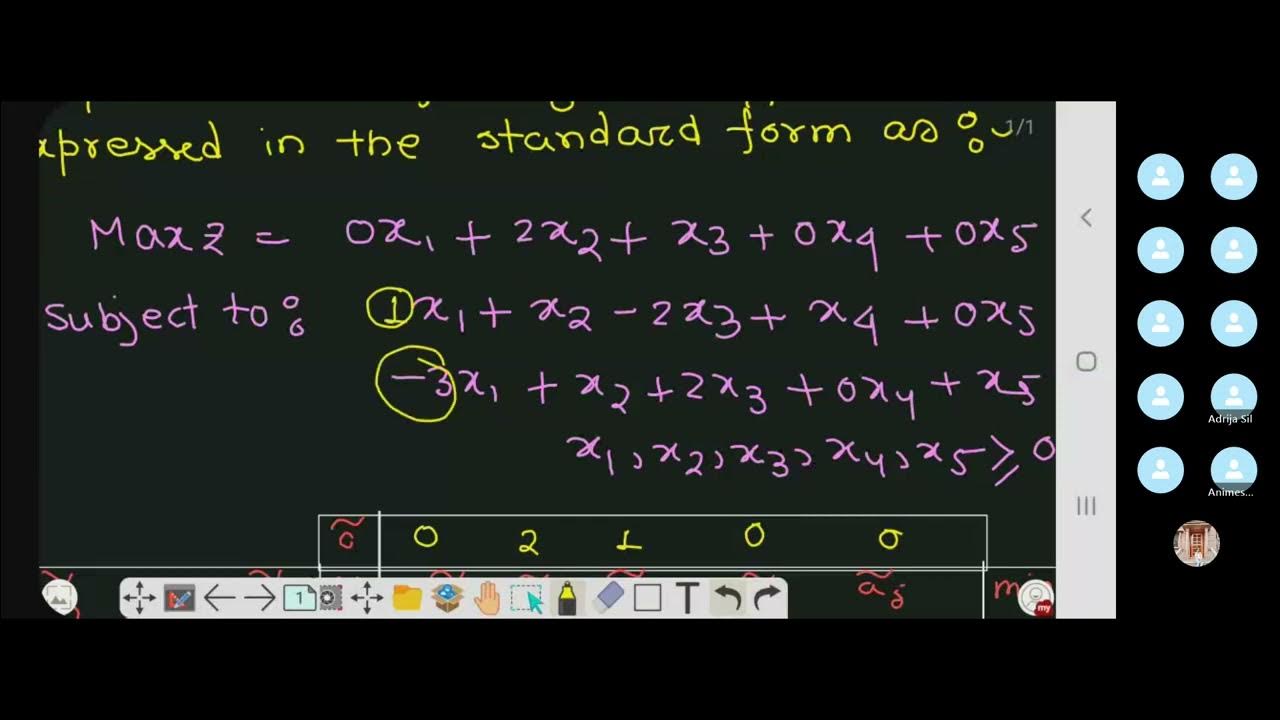 xpressed in the standard form as :-
1/1
Max Z = 0x₁ + 2x₂ + x₃ + 0x₄ + 0x₅
Subject to : 1x₁ + x₂ - 2x₃ + x₄ + 0x₅
-3x₁ + x₂ + 2x₃ + 0x₄ + x₅
x₁, x₂, x₃, x₄, x₅ ≥ 0
c̃ 0 2 1 0 0
ã₅
1
T
my
Adrija Sil
Animes...